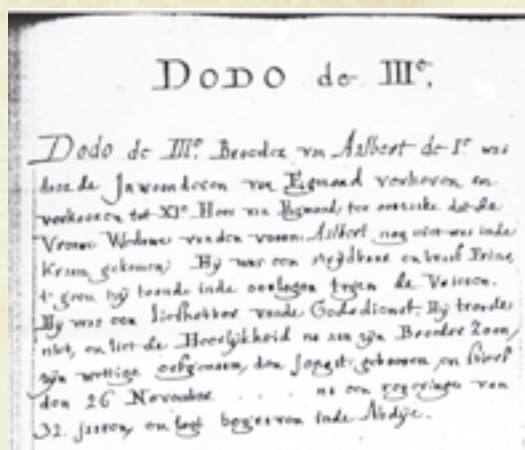 DODO de IIIe.
Dodo de IIIe. Broeder van Aelbert de Ie. was
door de Inwoonderen van Egmond verkoren en
verkooren tot XIe. Heer van Egmond, ter oorzake dat de
Vrouw Weduwe van den voorn. Aelbert nog niet was inde
Kraem gekomen; Hij was een strijdbaar en
t geen hij toonde inde oorlogen tegen de
Hij was een liefhebber vande Godsdienst. Hij trouwde
niet, en liet de Heerlijkheid na aan zijn Broeders Zoon,
zijn wettige den Jongst geboren, en stierf
den 26 November . . . . na een regeeringe van
32. jaaren, en legt begraven inde Abdije.